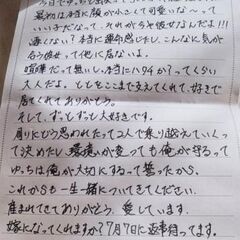 最初は本当に顔が小さくて可愛いなーって
いい子だなって、それから今や彼女なんだよ!!!
凄くない?本当に運命感じたし、こんなに気が
合う彼女って他に居ないよ。
喧嘩だって無いし、本当にハタチか?ってくらい
大人だよ。とてもここまで支えてくれて好きで
居てくれてありがとう。
そして、ずっとずっと大好きです。
周りにどう思われたって2人で乗り越えていくっ
て決めたし、環境が変っても俺が守るって
ゆっちは俺が大切にするって誓ったから。
これからも一生一緒についてきてください。
産まれてきてありがとう。愛しています。
嫁になってくれますか?7月7日に返事待ってます。